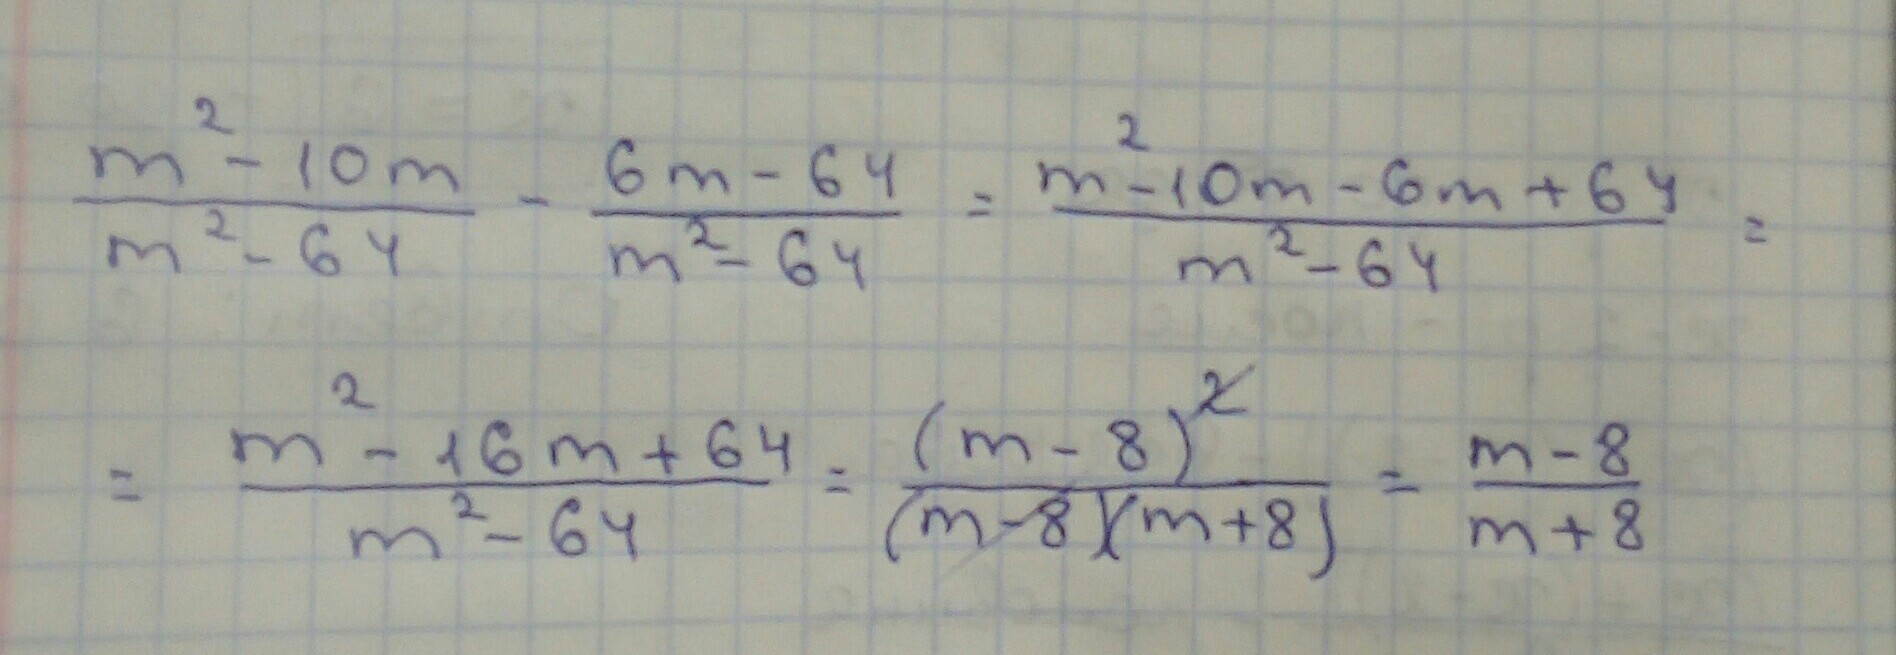 m² - 10m / m² - 64 - 6m - 64 / m² - 64 = m² - 10m - 6m + 64 / m² - 64 =
= m² - 16m + 64 / m² - 64 = (m - 8)² / (m - 8)(m + 8) = m - 8 / m + 8